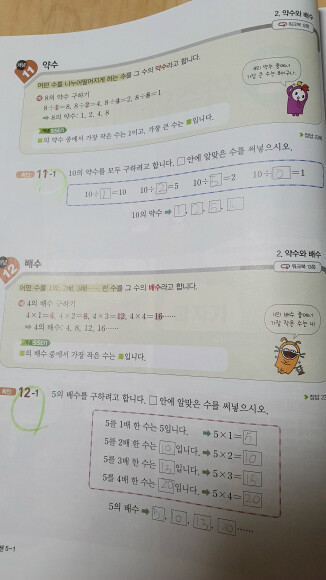 2. 약수와 배수
개념 11 약수
워크북 12쪽
어떤 수를 나누어떨어지게 하는 수를 그 수의 약수라고 합니다.
예 8의 약수 구하기
8÷1=8, 8÷2=4, 8÷4=2, 8÷8=1
➡ 8의 약수: 1, 2, 4, 8
■의 약수 중에서 가장 작은 수는 1이고, 가장 큰 수는 ■입니다.
정답
확인 11-1 10의 약수를 모두 구하려고 합니다. □ 안에 알맞은 수를 써넣으시오.
10÷1=10 10÷2=5 10÷5=2 10÷ =1
10의 약수 ➡ 1, 2, 5,
2. 약수와 배수
12 배수
워크북 13쪽
어떤 수를 1배, 2배, 3배…… 한 수를 그 수의 배수라고 합니다.
예 4의 배수 구하기
4×1=4, 4×2=8, 4×3=12, 4×4=16……
➡ 4의 배수: 4, 8, 12, 16……
■의 배수 중에서 가장 작은 수는 ■입니다.
정답
확인 12-1 5의 배수를 구하려고 합니다. □ 안에 알맞은 수를 써넣으시오.
5를 1배 한 수는 5입니다. ➡ 5×1=5
5를 2배 한 수는 10입니다. ➡ 5×2=10
5를 3배 한 수는 15입니다. ➡ 5×3=15
5를 4배 한 수는 20입니다. ➡ 5×4=20
5의 배수 ➡ 5, 10, 15, 20 ……
5-1